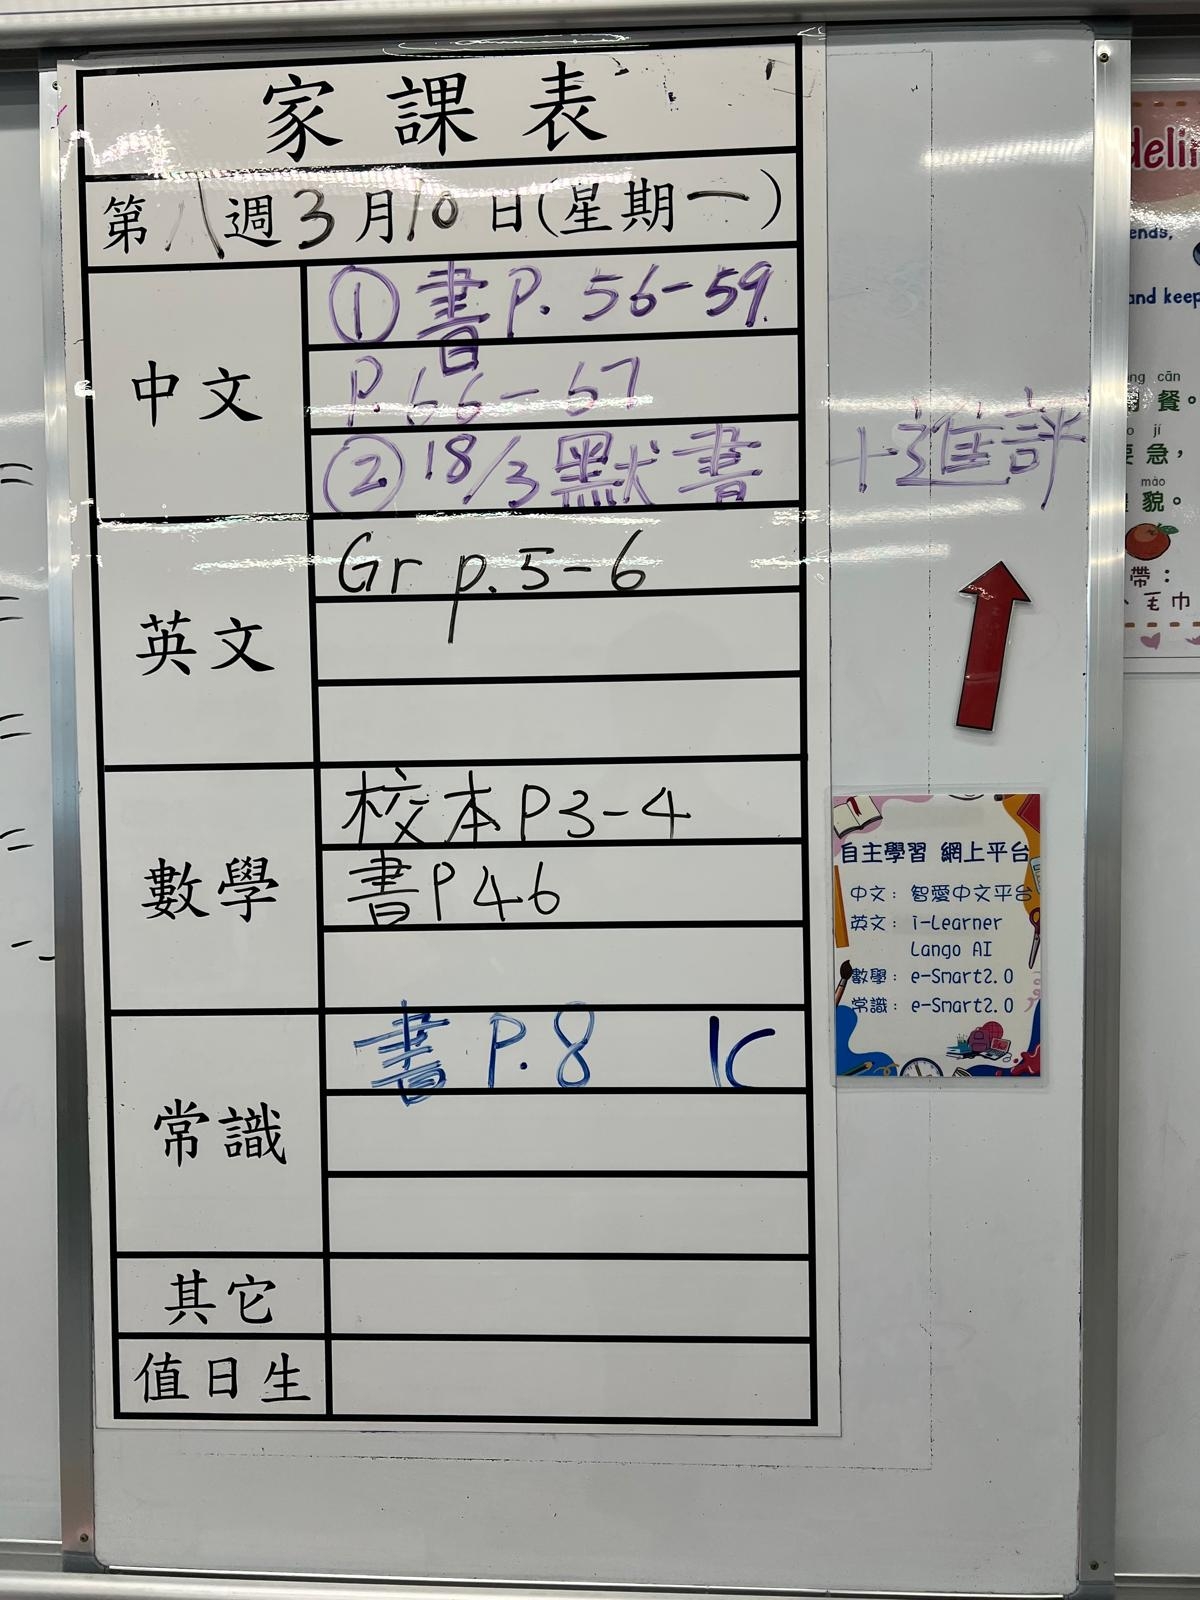 家課表
第八週3月10日(星期一)
中文
①書P. 56-59.
P. 66-67
②18/3默書
+進評
英文
Gr p.5-6
數學
校本P3-4
書P46
常識
書P.8 1C
其它
值日生
自主學習 網上平台
中文: 智愛中文平台
英文: i-Learner
Lango AI
數學: e-Smart2.0
常識: e-Smart2.0
ends,
and keep
cān
餐。
jí
急，
mào
貌。
帶：
、毛巾